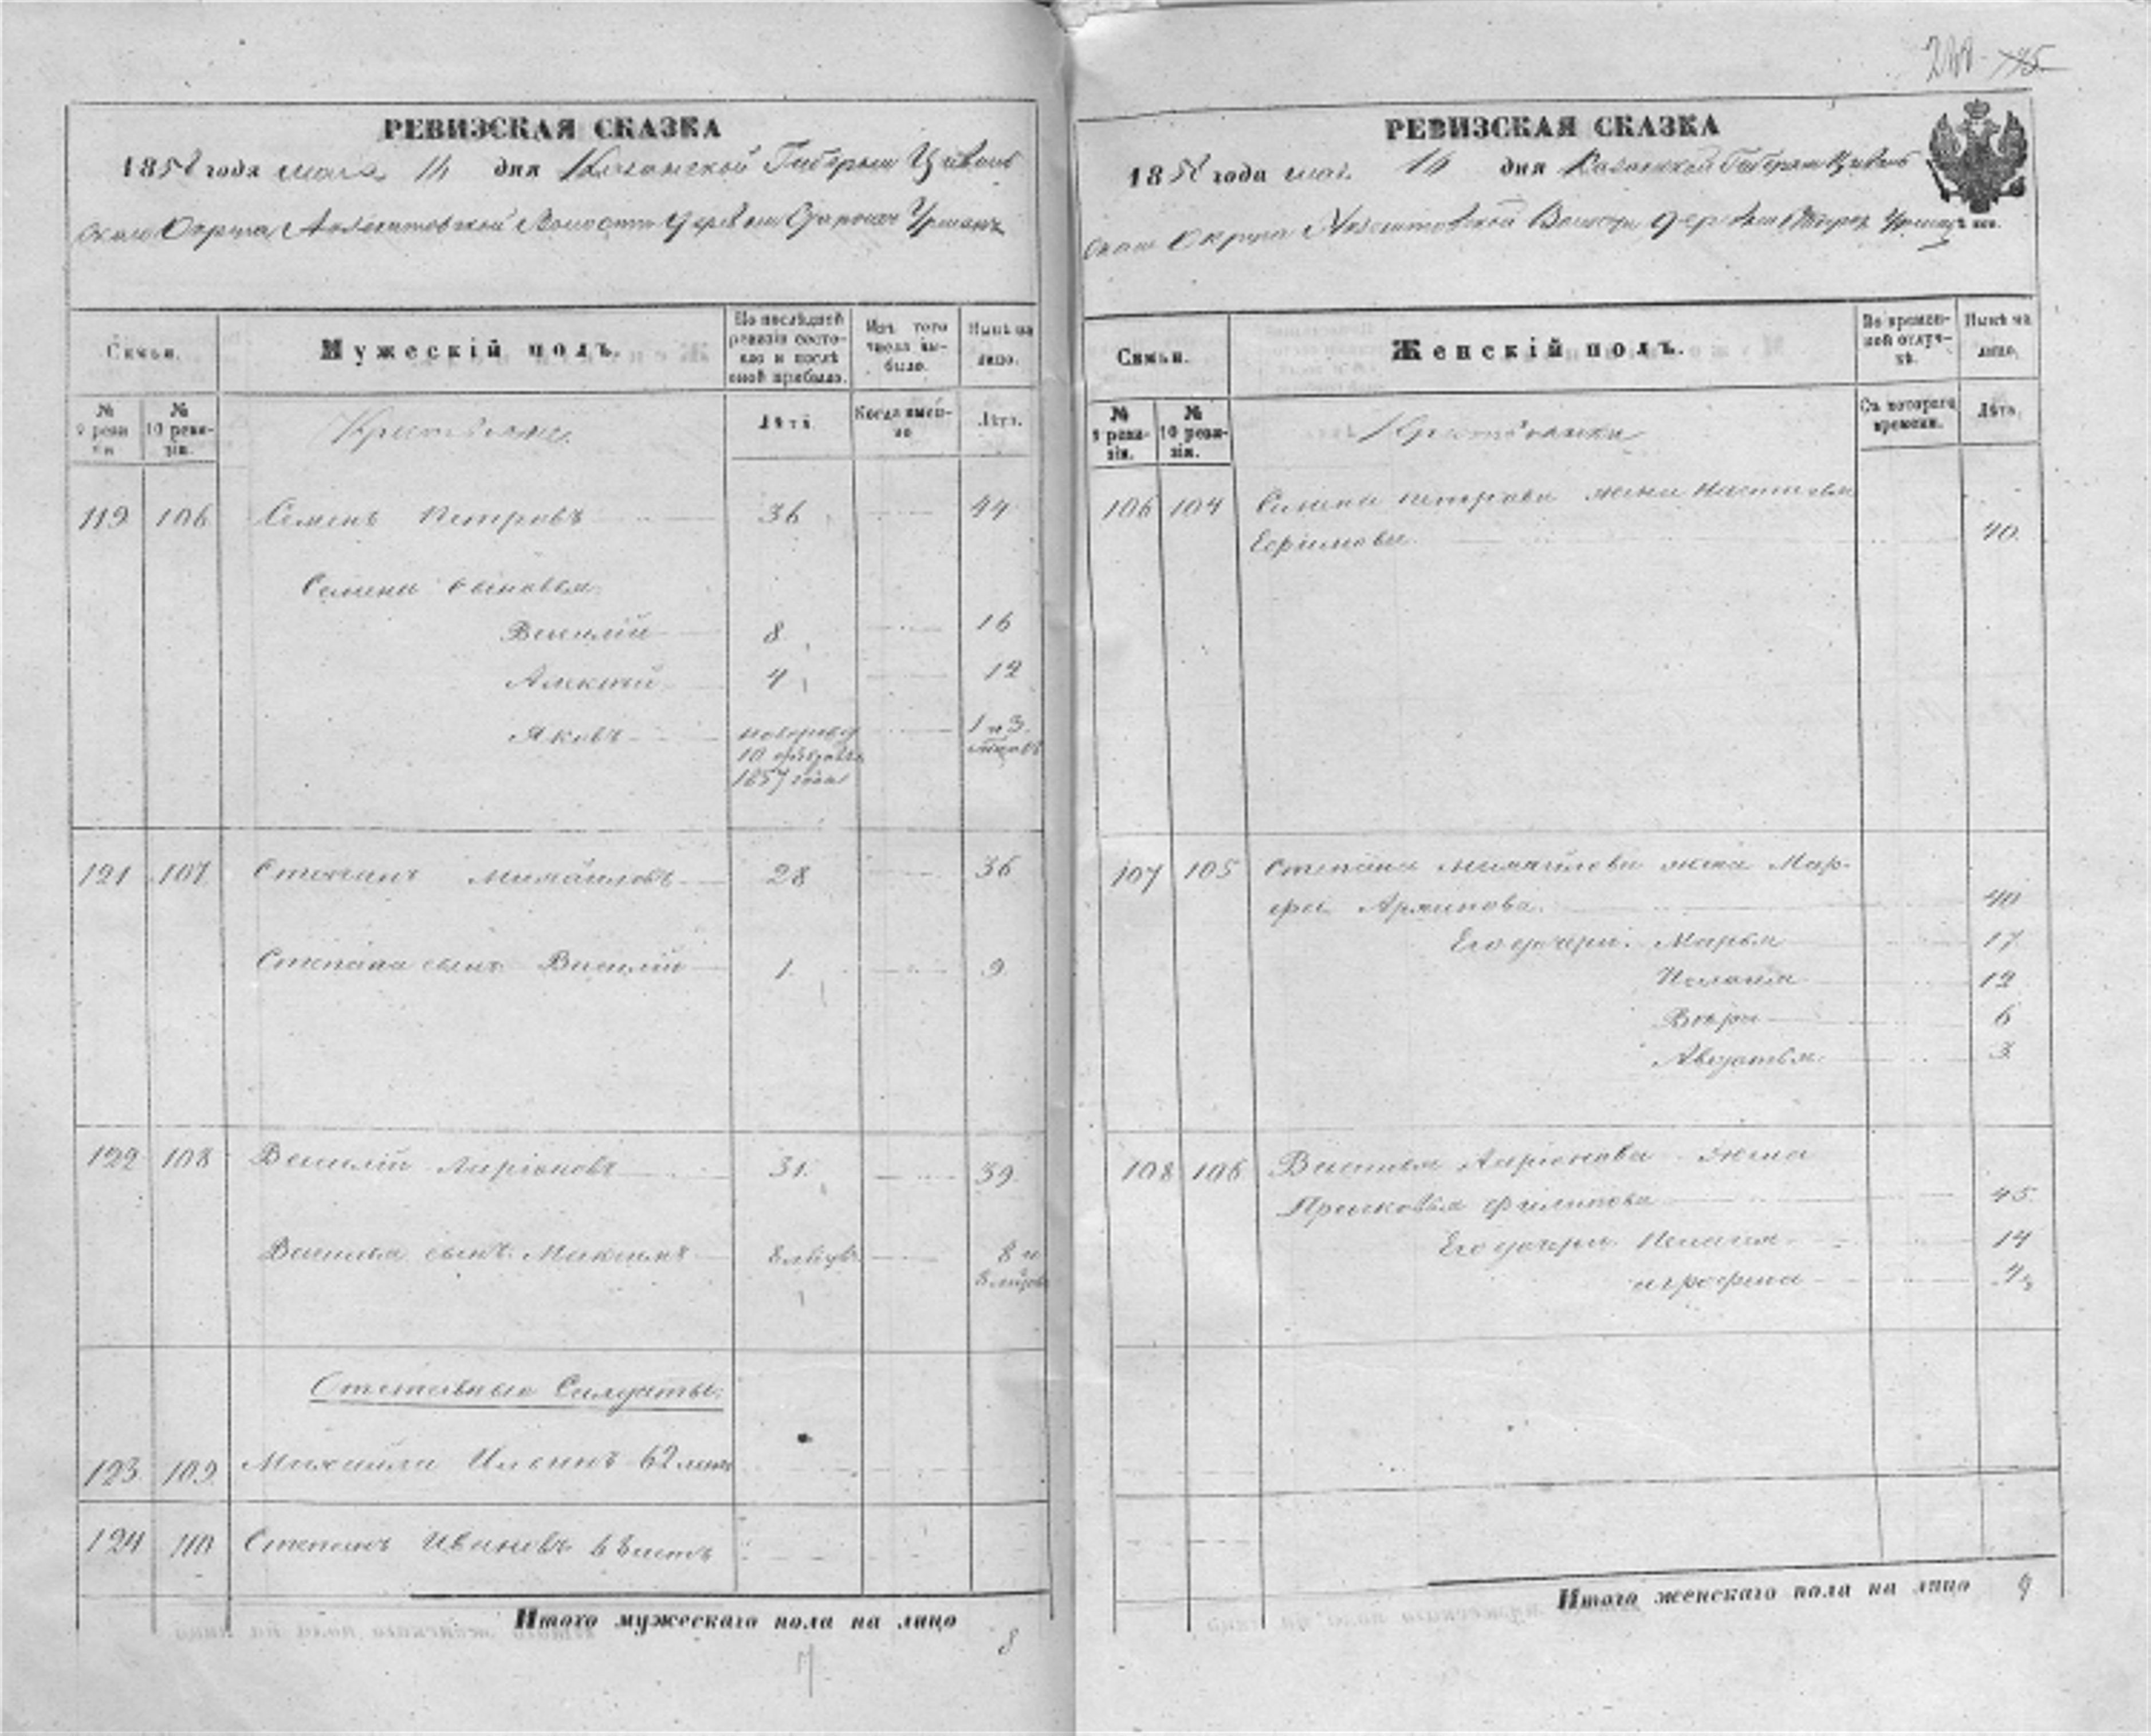 288 175
РЕВИЗСКАЯ СКАЗКА
1858 года мая 14 дня Казанской Губерніи Цивиль
скаго Округа Волости Деревни Урмаръ
Семьи.
Мужескій полъ.
По послѣдней ревизіи состояло и послѣ оной прибыло.
Изъ того числа выбыло.
Нынѣ на лицо.
№ 9 ревизіи
№ 10 ревизіи.
Крестьяне
Лѣта.
Когда именно
Лѣта.
119 106 Семенъ Петровъ 36 44
Семена сыновья
Василій 8 16
Алексѣй 4 12
Яковъ новорожд 1 и 3
10 февраля мѣсяцовъ
1857 года
121 107 Степанъ Михайловъ 28 36
Степана сынъ Василій 1 9
122 108 Василій Ларіоновъ 31 39
Василья сынъ Максимъ 8 мѣсяц 8 и
8 мѣсяц
Отставные Солдаты:
123 109 Михайла Ильинъ 62 лѣтъ
124 110 Степанъ Ивановъ лѣтъ
Итого мужескаго пола на лицо
8
7
РЕВИЗСКАЯ СКАЗКА
1858 года мая 14 дня Казанской Губерніи Цивиль
скаго Округа Волости Деревни Урмаръ
Семьи.
Женскій полъ.
Во временной отлучкѣ.
Нынѣ на лицо.
№ 9 ревизіи.
№ 10 ревизіи.
Крестьянки
Съ котораго времени.
Лѣта.
106 104 Семена Петрова жена Настасья
Ефимова 40
107 105 Степана Михайлова жена Мар-
фа 40
Его дочери. Марья 17
12
Вѣра 6
Авдотья 3
108 106 Василья Ларіонова жена
Прасковья Филипова 45
Его дочери Пелагея 14
Аграфена 4
Итого женскаго пола на лицо 9